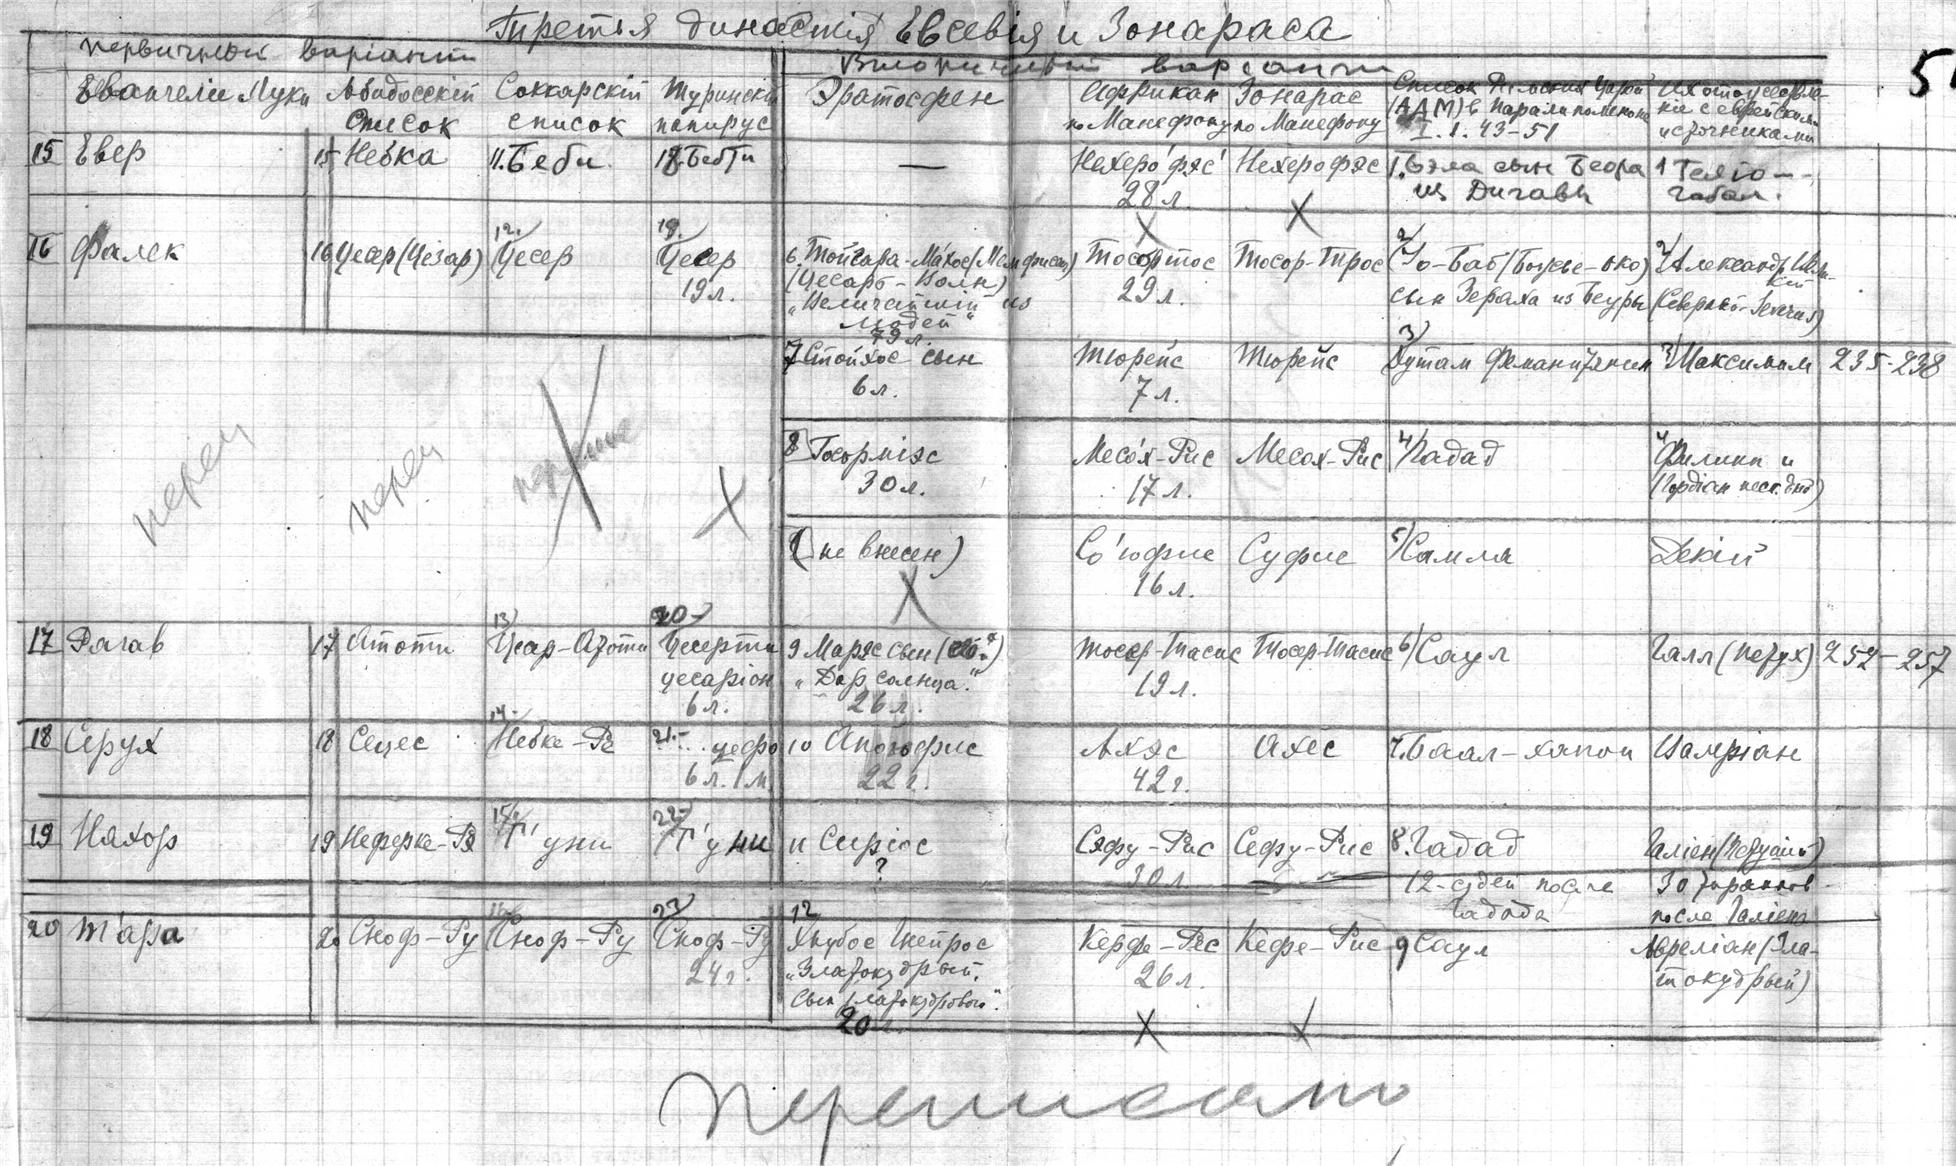 Третья династія Евсевія и Зонараса
первичный варіант
Вторичный варіант
5
Евангеліе Луки
Абидосскій список
Саккарскій список
Туринскій папирус
Эратосфен
Африкан по Манефону
Зонарас по Манефону
Список Царей (АДМ) в Паралипоменоне I. 1. 43-51
с еврейскими источниками
15 Евер
15 Небка
11. Беби
18. Бебти
—
Нехерофэс 28 л.
Нехерофэс
1. Бэла сын Беора из Дингавы
1 Гелio-габал.
16 Фалек
16 Цесар (Цезар)
12. Цесер
19. Цесер 19 л.
6 Тойгара-Махос (Мемфисец) (Цесарь-Волн) „Величайший из людей“ 79 л.
Тосортос 29 л.
Тосор-Трос
2/ Іо-Баб (Божье-око) сын Зераха из Бецры
2/ Александр (Северный-Severus)
7 Стойхос сын 6 л.
Тюрейс 7 л.
Тюрейс
3) Хушам Феманитянин
3/ Максимин 235-238
перец
перец
8 Госорміэс 30 л.
Месох-Рис 17 л.
Месох-Рис
4/ Гадад
4 Филипп и (Гордіан неск. дней)
(не внесен)
Со'юфис 16 л.
Суфис
5) Самла
Декій
17 Рагав
17 Атоти
13) Цезар-Атоти
20- Цесерти цесаріон 6 л.
9 Марэс сын „Дар солнца.“ 26 л.
Тосер-Тасис 19 л.
Тосер-Тасис
6) Саул
Галл (Петух) 252-257
18 Серух
18 Сецес
14. Небке-Ре
21. ... цефо 6 л. 1 м.
10 Апоюфис 22 г.
Ахэс 42 г.
Ахес
7. Баал-ханон
Валеріан
19 Нахор
19 Неферке-Ра
15. Г'уни
22. Г'уни
11 Сиріос ?
Сэфу-Рис 30 л.
Сефу-Рис
8. Гадад
Галіен (Петушій)
12-судей после Гадада
30 тиранов после Галіена
20 Тара
20 Сноф-Ру
16 Сноф-Ру
23 Сноф-Ру 24 г.
12 Хнубос Гнейрос „Златокудрый, сын златокудрового“. 20 г.
Керфе-Рес 26 л.
Кефе-Рис
9 Саул
Авреліан (Златокудрый)
Переписано